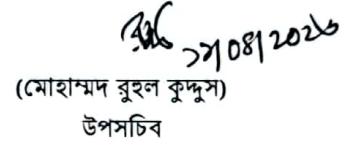 /08/2026
(মোহাম্মদ রুহুল কুদ্দুস)
উপসচিব